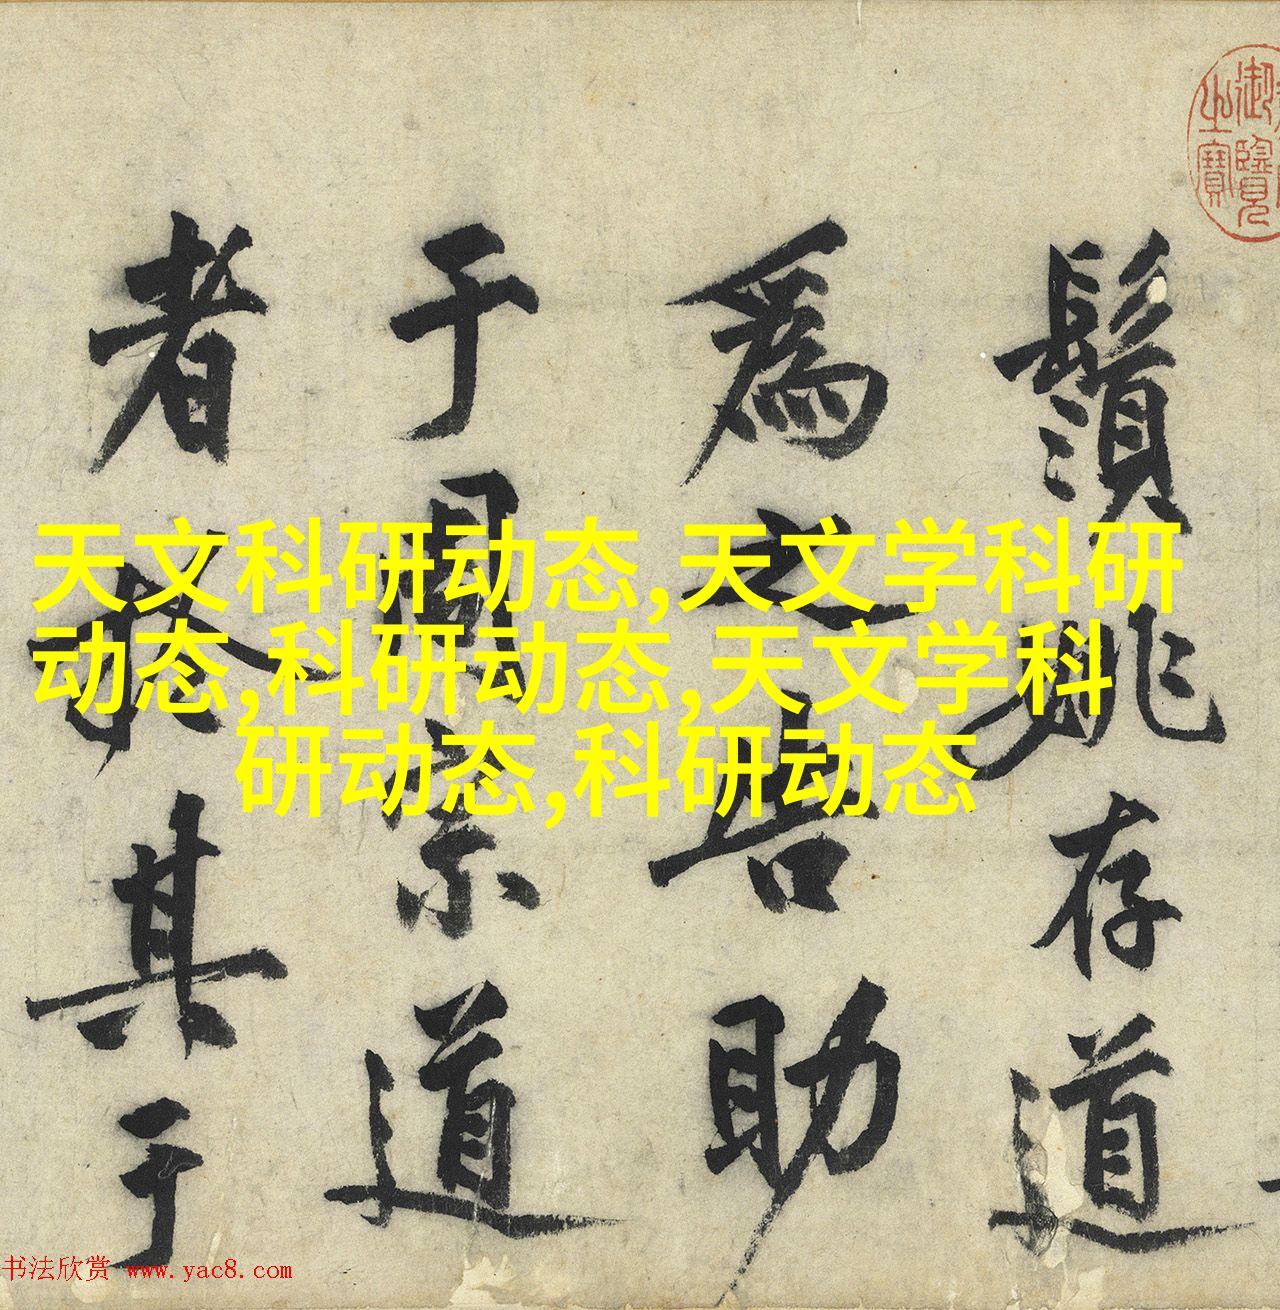 御覽
之寶
鬚姚存道
為之告助
于周宗道
者於其于
天文科研动态,天文学科研
动态,科研动态,天文学科
研动态,科研动态
书法欣赏 www.yac8.com